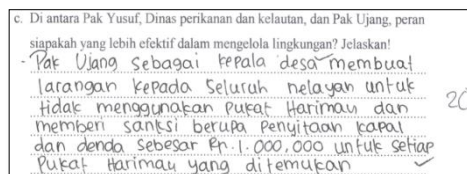 c. Di antara Pak Yusuf, Dinas perikanan dan kelautan, dan Pak Ujang, peran
siapakah yang lebih efektif dalam mengelola lingkungan? Jelaskan!
- Pak Ujang sebagai kepala desa membuat
larangan kepada seluruh nelayan untuk
tidak menggunakan Pukat Harimau dan
20
memberi sanksi berupa Penyitaan kapal
dan denda sebesar Rp.1.000.000 untuk setiap
Pukat Harimau yang ditemukan